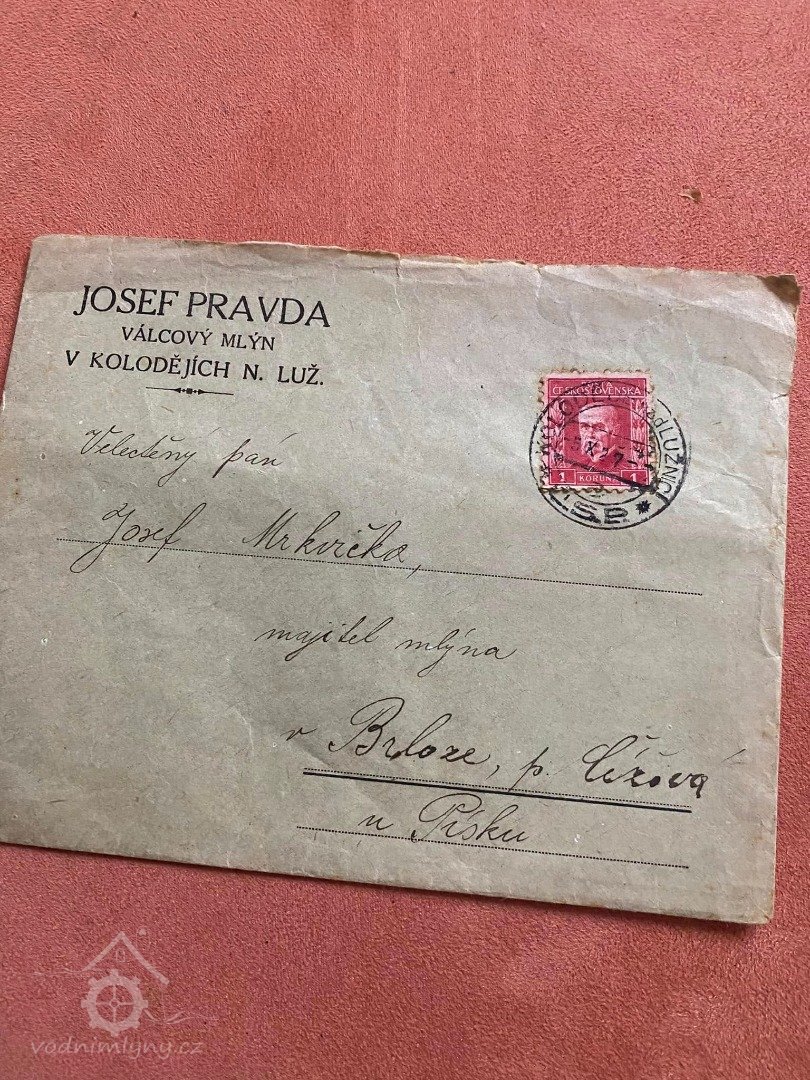 JOSEF PRAVDA
VÁLCOVÝ MLÝN
V KOLODĚJÍCH N. LUŽ.
ČESKOSLOVENSKA
1 KORUNA 1
KOLODĚJE nad LUŽNICÍ
X 27
Velectěný pán
Josef Mrkvička,
majitel mlýna
v Brloze, p. Čížová
u Písku
vodnimlyny.cz